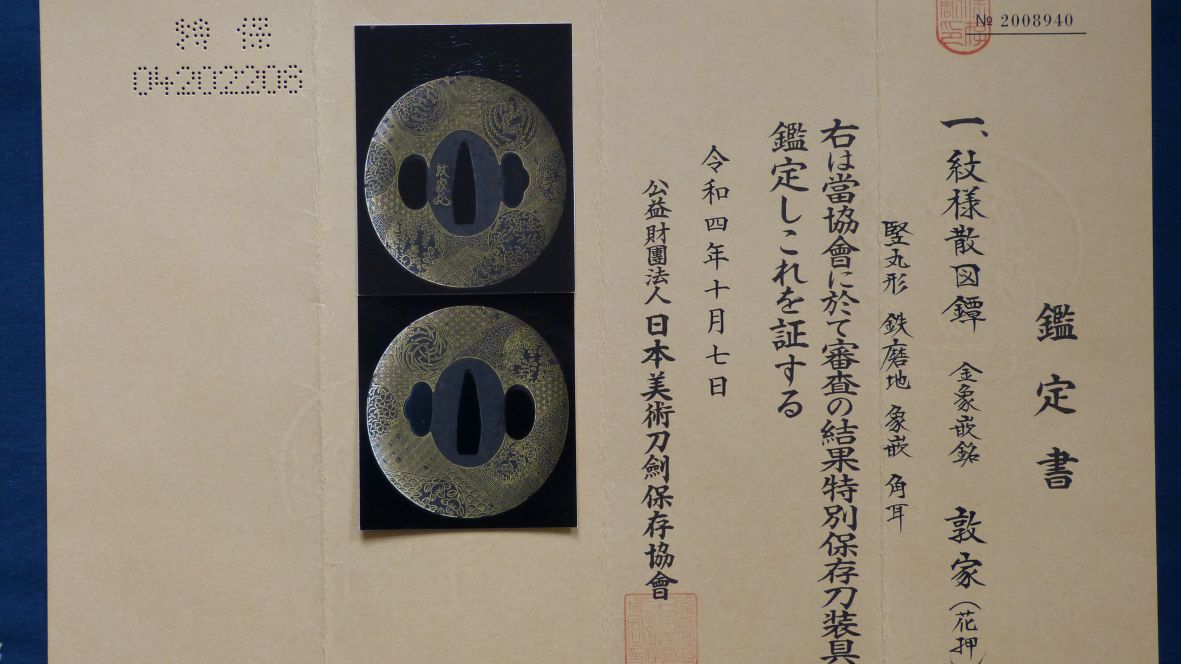 № 2008940
鑑定書
一、紋様散図鐔 金象嵌銘 敦家(花押
竪丸形 鉄磨地 象嵌 角耳
右は當協會に於て審査の結果特別保存刀装具
鑑定しこれを証する
令和四年十月七日
公益財團法人 日本美術刀劍保存協會
特保
04202208
敦家